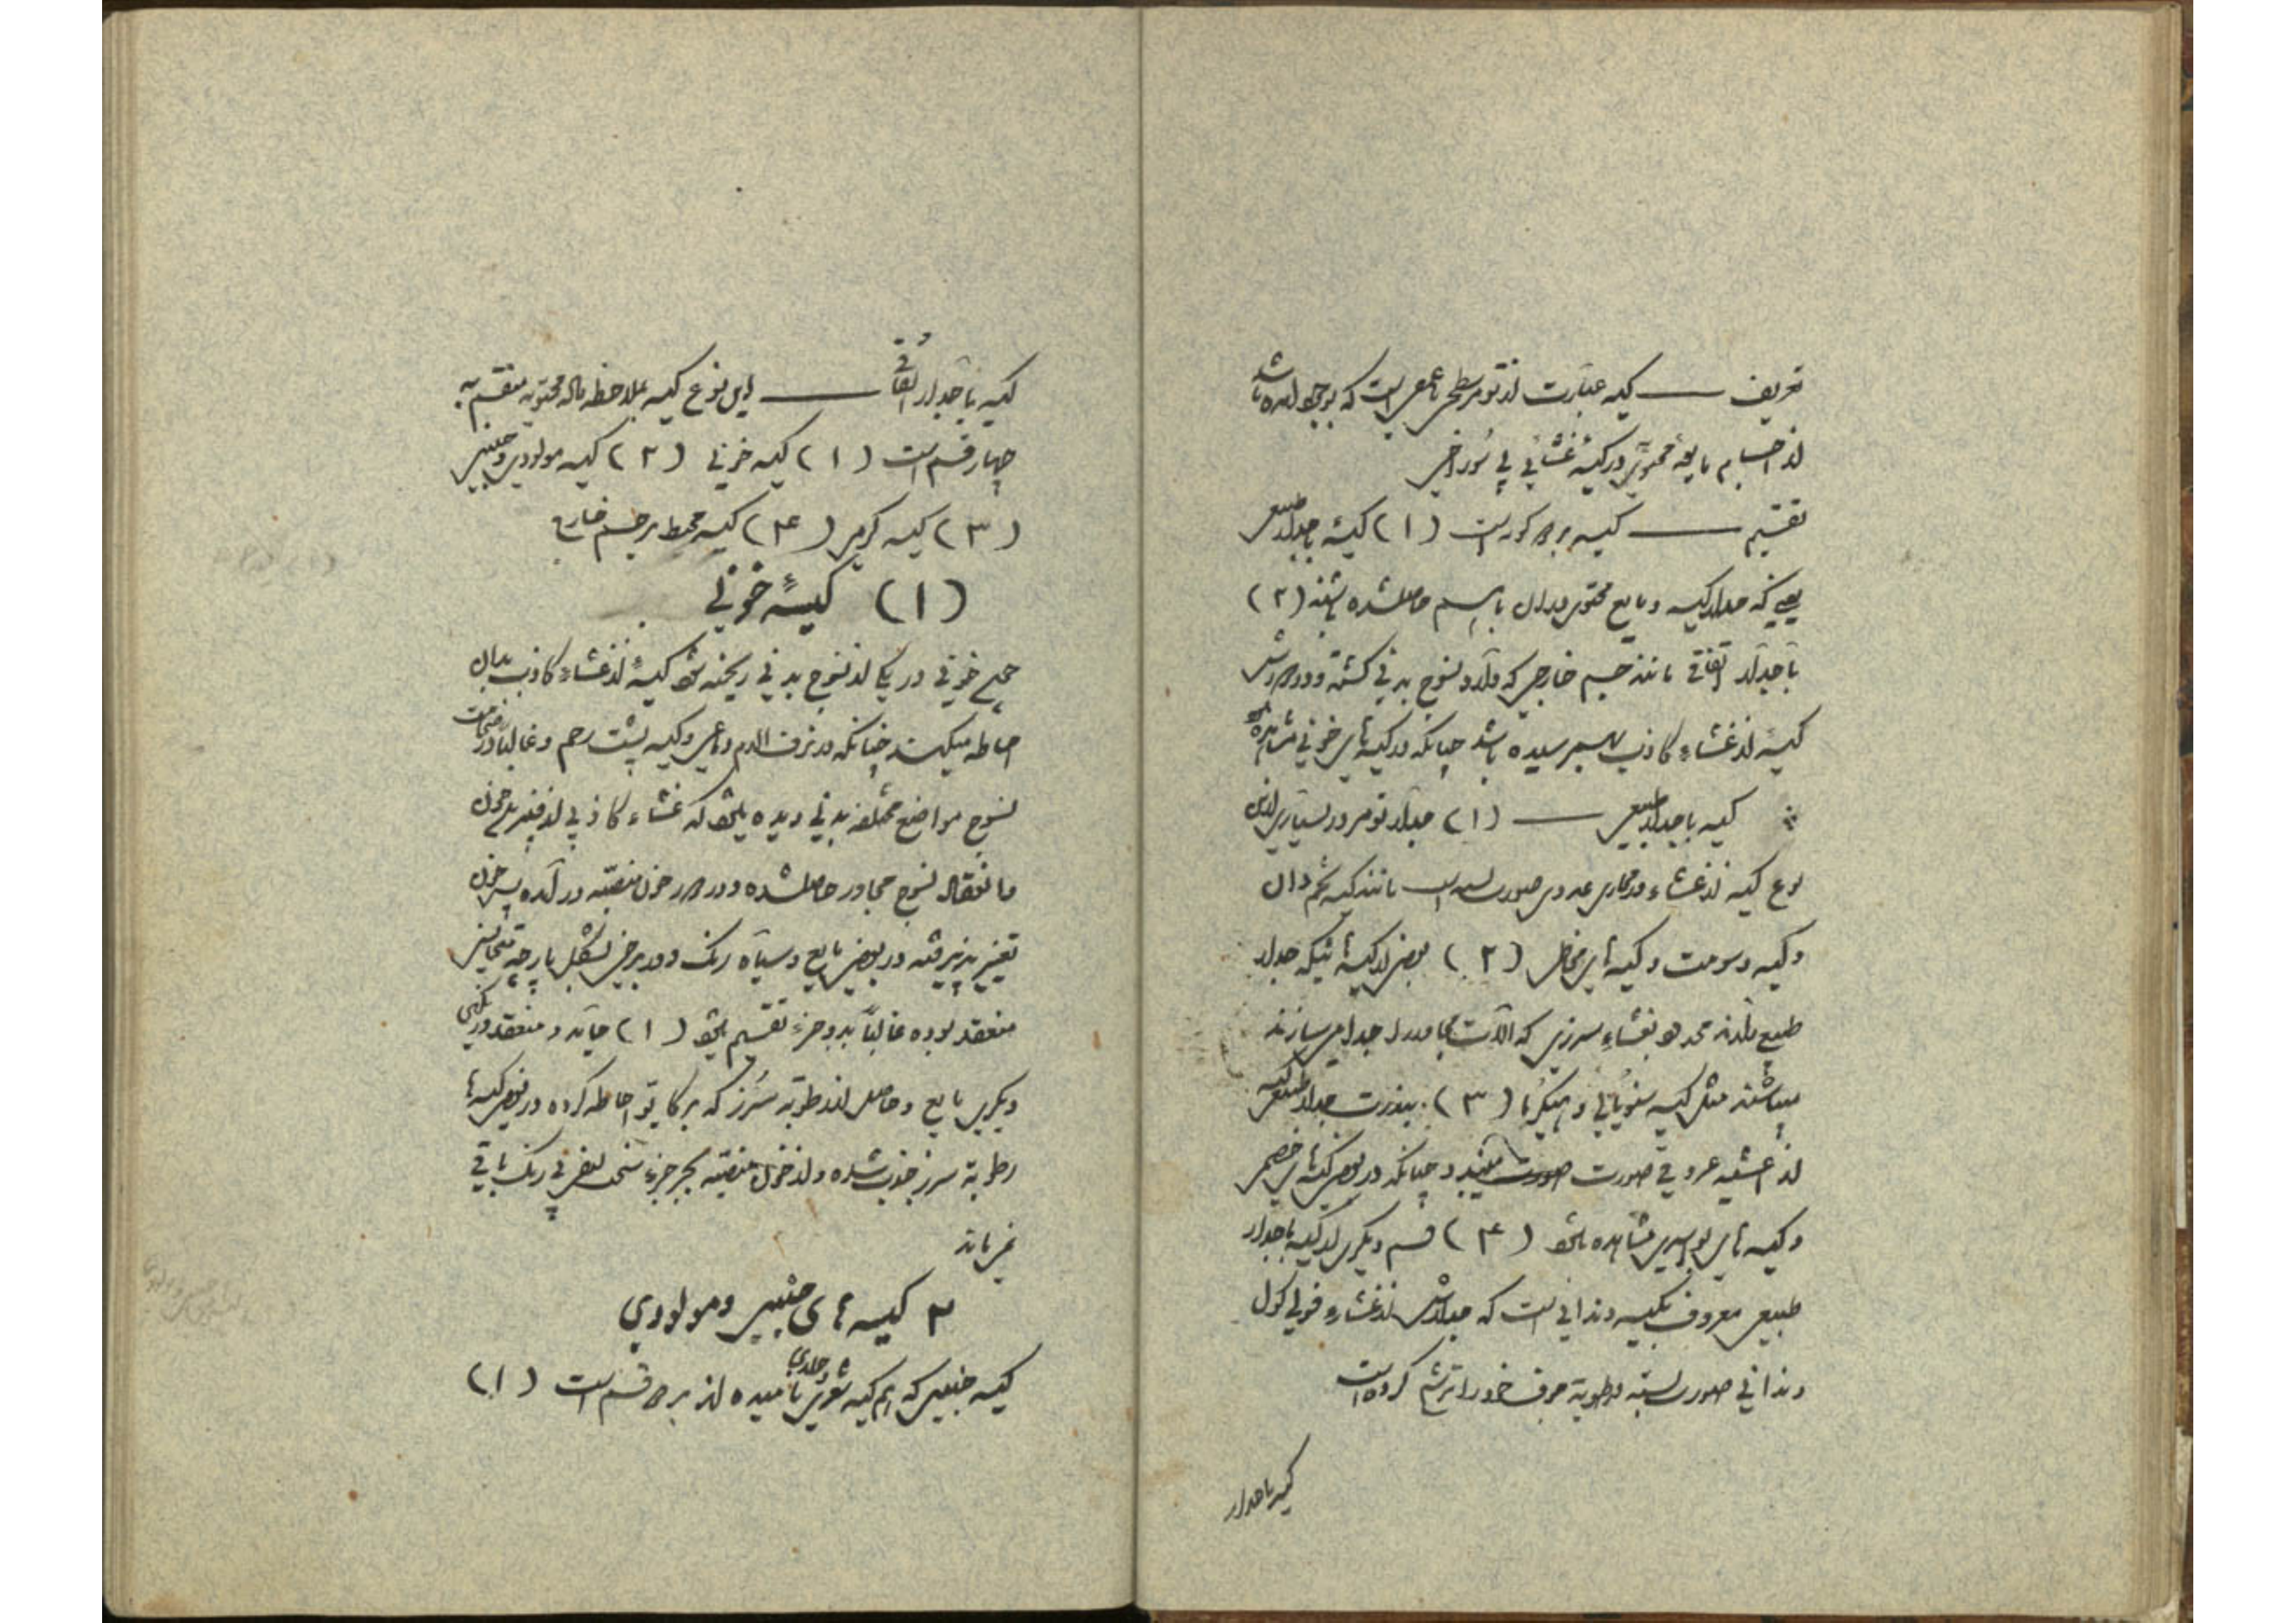 تعریف — کیسه عبارت از تومر سطحی یا عمیقی است که بوجود آمده باشد
از اجسام مایعه محتوی در کیسهٔ غشائی بی سوراخی
تقسیم — کیسه بر دو گونه است (۱) کیسهٔ با جدار طبیعی
یعنی که جدار کیسه و مایع محتوی در آن با هم حاصل شده باشند (۲)
با جدار اتفاقی مانند جسم خارجی که وارد نسوج بدنی گشته و در دورش
کیسهٔ از غشاء کاذب بهم رسیده باشد چنانکه در کیسه های خونی مشاهده
کیسه با جدار طبیعی — (۱) جدار تومر در بسیاری از این
نوع کیسه از غشاء و مجاری غددی صورت بسته است مانند کیسه تخم دان
و کیسه دسومت و کیسه های مخاطی (۲) بعضی از کیسه ها نیکه جدار
طبیعی دارند محدود بغشاء سرزی که آلات مجاور را جدا میسازند
میباشند مثل کیسه سنویائی و هیگرما (۳) بندرت جدار طبیعی کیسه
از اغشیه عروقی صورت میبندد چنانکه در بعضی کیسه های خصیی
و کیسه های بواسیری مشاهده میشود (۴) قسم دیگری از کیسه با جدار
طبیعی معروف بکیسه دندانی است که جدارش از غشاء فولیکول
دندانی صورت بسته رطوبة صرف خود را ترشح کرده است
کیسه با جدار
کیسه با جدار اتفاقی — این نوع کیسه بملاحظه ماده محتویه منقسم به
چهار قسم است (۱) کیسه خونی (۲) کیسه مولودی و جنینی
(۳) کیسه کرمی (۴) کیسه محیط بر جسم خارجی
(۱) کیسهٔ خونی
چون خونی در یکی از نسوج بدنی ریخته شود کیسهٔ از غشاء کاذب بدان
احاطه میکند چنانکه در نزف الدم دماغی و کیسه پشت رحم و غالباً در ضخامت
نسوج مواضع مختلفه بدنی دیده میشود که غشاء کاذبی از فیبرین خون
و انعقاد نسوج مجاور حاصل شده و در دور خون منصبه در آمده پس خون
تغییر پذیرفته در بعضی مایع و سیاه رنگ و در برخی بشکل پارچه
منعقد بوده غالباً بدو جزء تقسیم میشود (۱) جامد و منعقد و رنگین
دیگری مایع و حاصل از رطوبة سرز که بر کایو احاطه کرده در بعضی کیسه ها
رطوبة سرز جذب شده و از خون منصبه بجز جزء سخت بعضی بی رنگ باقی
نمی ماند
۲ کیسه های جنینی و مولودی
کیسه جنینی که هم کیسه شعری جلدی نامیده اند بر دو قسم است (۱)